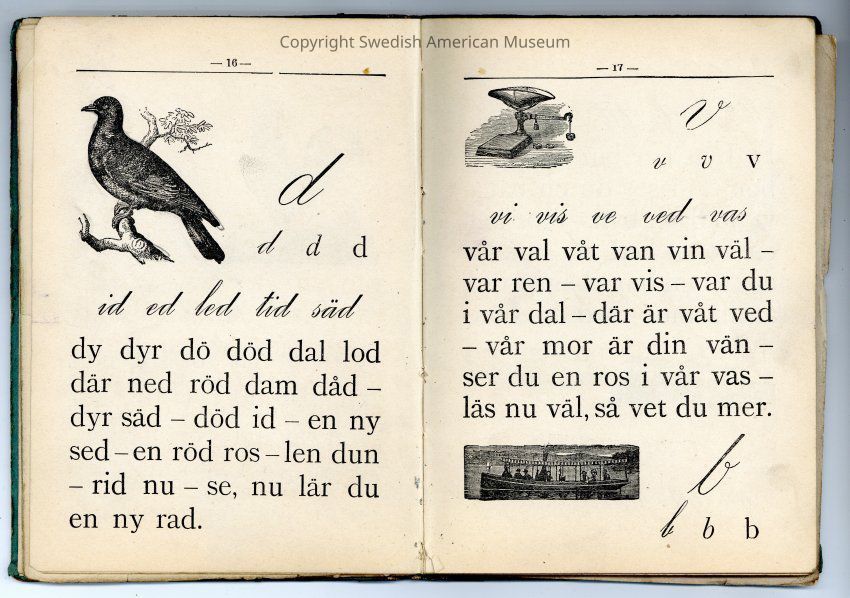 Copyright Swedish American Museum
— 16 —
d
d d d
id ed led tid säd
dy dyr dö död dal lod
där ned röd dam dåd –
dyr säd – död id – en ny
sed – en röd ros – len dun
– rid nu – se, nu lär du
en ny rad.
— 17 —
v
v v v
vi vis ve ved vas
vår val våt van vin väl –
var ren – var vis – var du
i vår dal – där är våt ved
– vår mor är din vän –
ser du en ros i vår vas –
läs nu väl, så vet du mer.
b
b b b